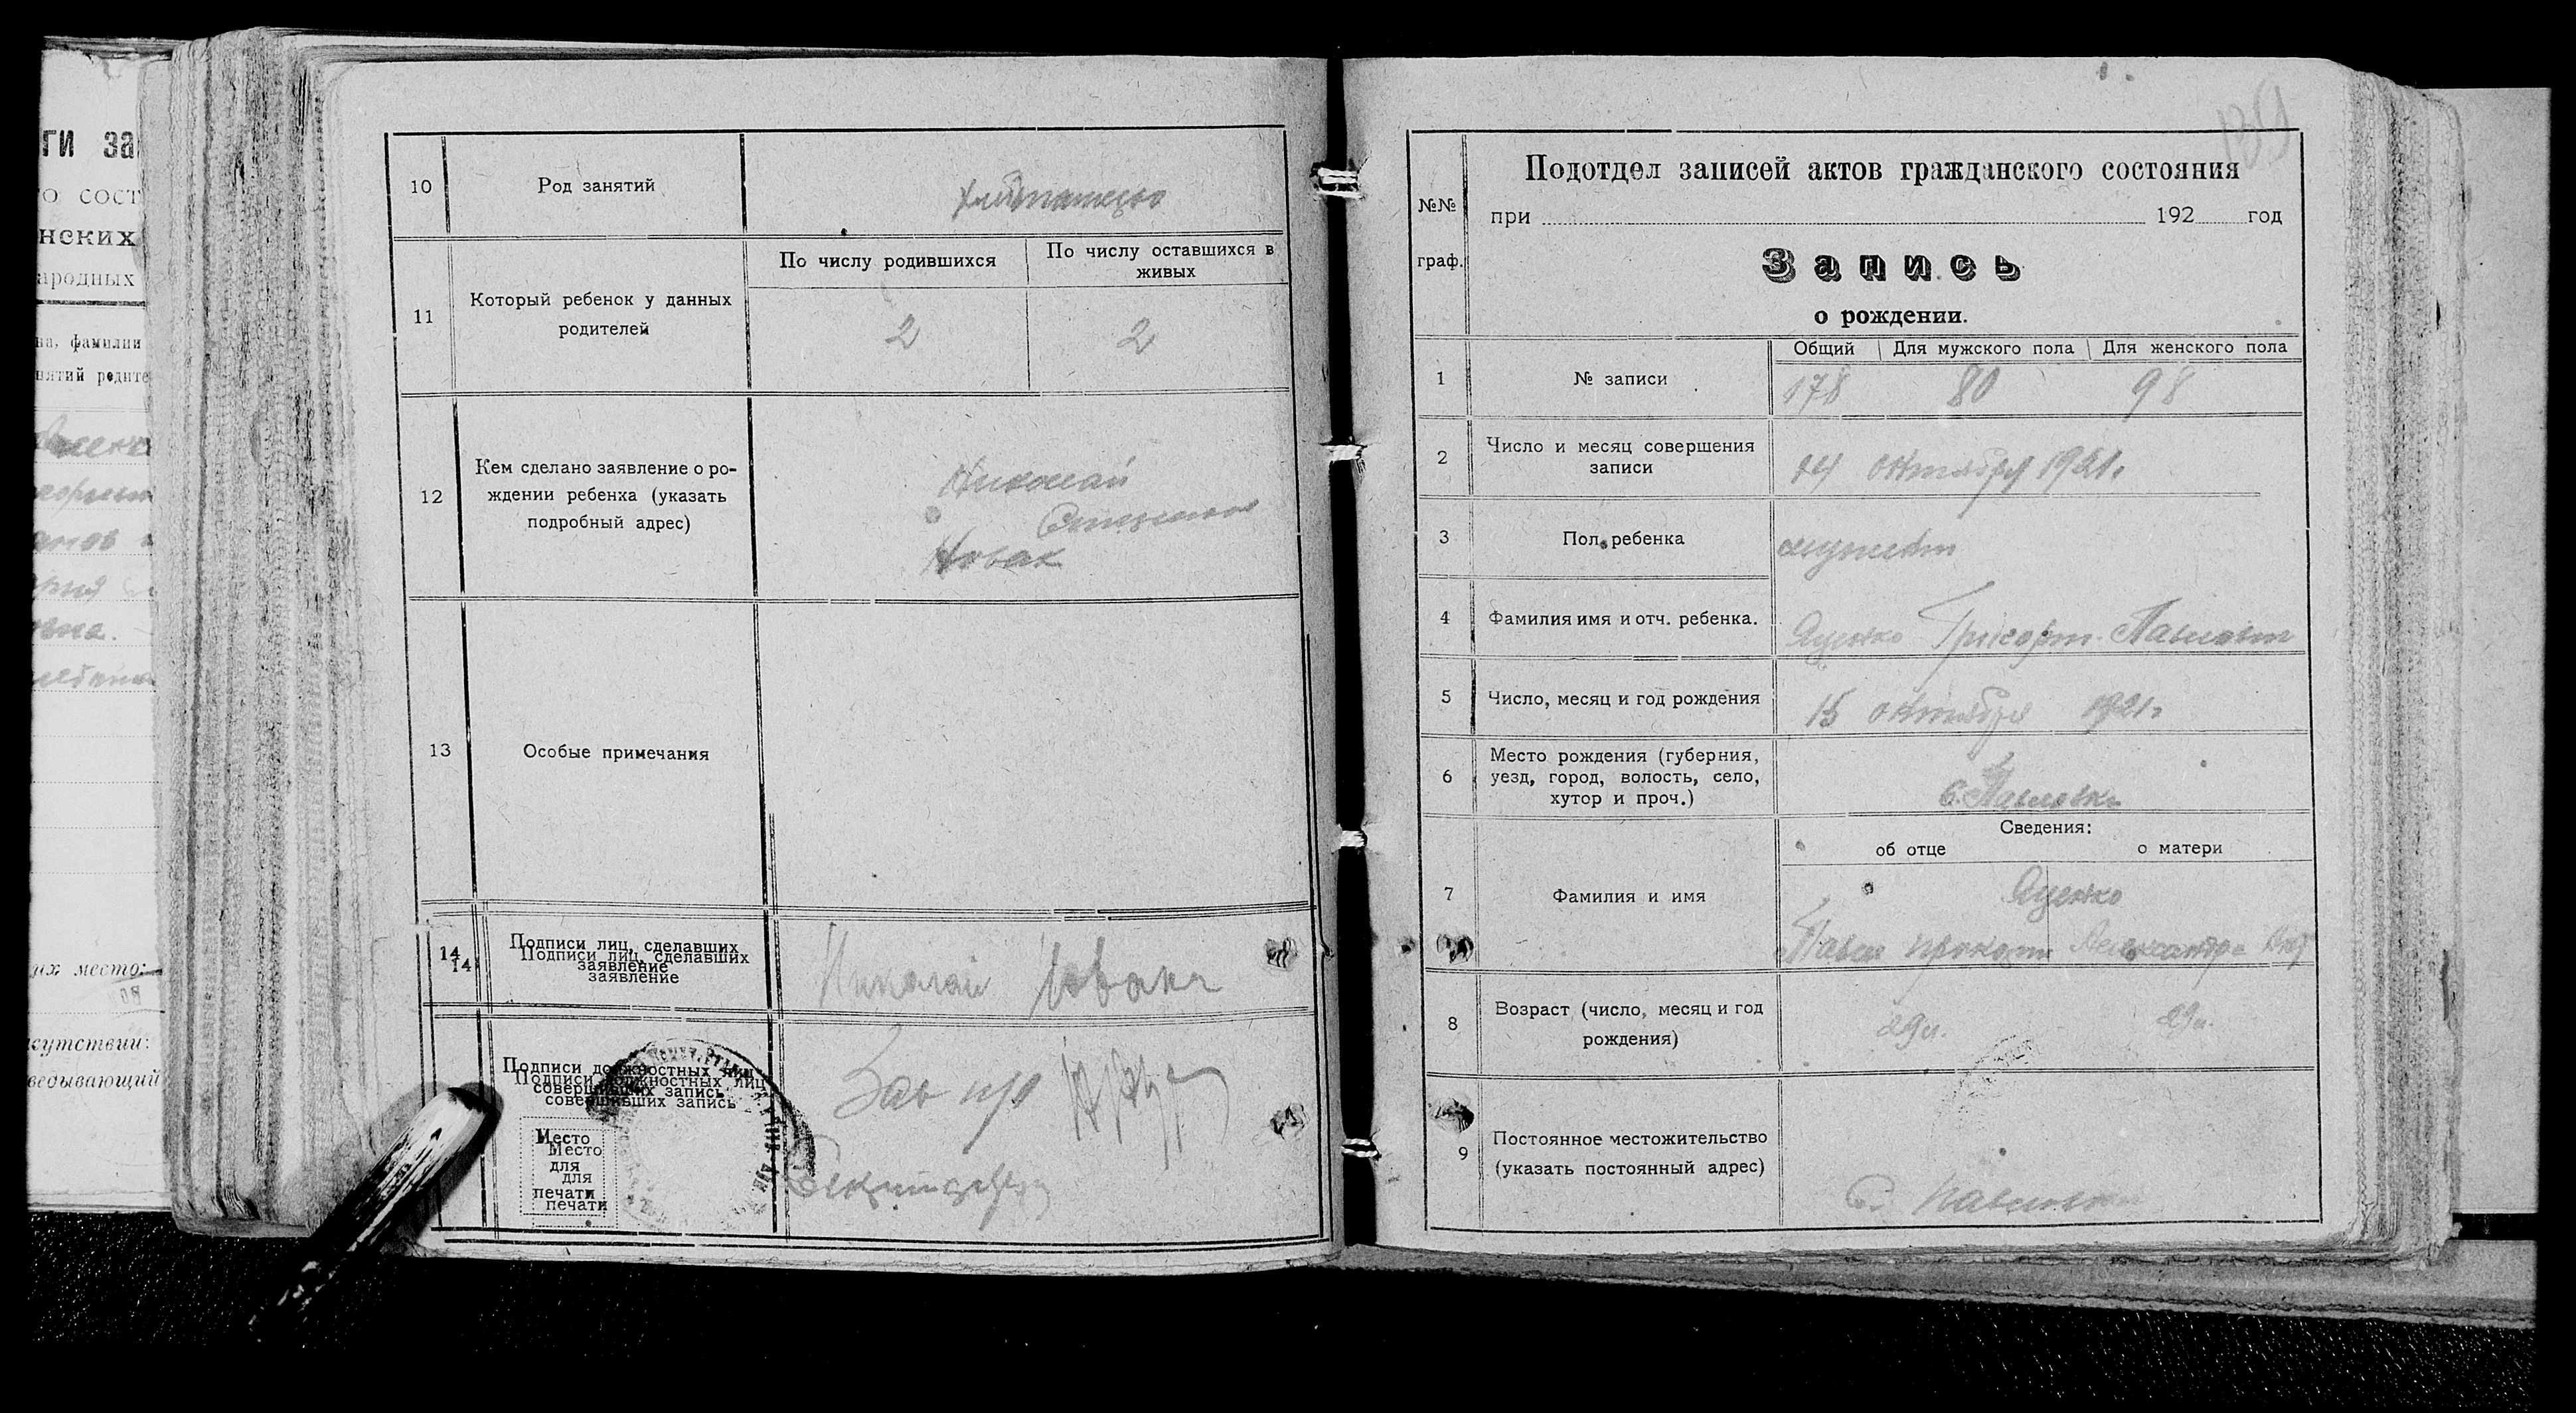 ГИ ЗА
О СОСТ
НСКИХ
ародных
на, фамилии
нятий родите
их место:
сутствии:
ведывающий
10 Род занятий
11 Который ребенок у данных
родителей
По числу родившихся
По числу оставшихся в
живых
2 2
12 Кем сделано заявление о ро-
ждении ребенка (указать
подробный адрес)
Николай
Новак
13 Особые примечания
14 Подписи лиц, сделавших
заявление
14 Подписи лиц, сделавших
заявление
Николай Новак
Подписи должностных лиц
совершивших запись
Подписи должностных лиц
совершивших запись
Место
для
печати
Место
для
печати
Зав
139
№№
граф.
Подотдел записей актов гражданского состояния
при 192 год
Запись
о рождении.
Общий Для мужского пола Для женского пола
1 № записи 178 80 98
2 Число и месяц совершения
записи
14 октября 1921г
3 Пол ребенка
4 Фамилия имя и отч. ребенка. Яценко
5 Число, месяц и год рождения 15 октября 1921г
6 Место рождения (губерния,
уезд, город, волость, село,
хутор и проч.)
с. Павловка
Сведения:
об отце о матери
7 Фамилия и имя
Яценко
Павел Александра
8 Возраст (число, месяц и год
рождения)
29л. 29л.
9 Постоянное местожительство
(указать постоянный адрес)
с. Павловка